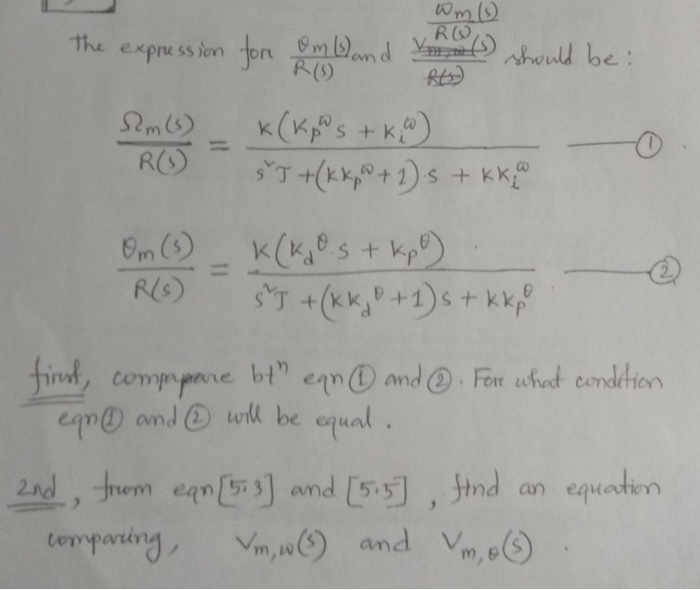 ωm(s)
R(s)
The expression for θm(s)/R(s) and Vm,ω(s)/R(s) should be:
Ωm(s)/R(s) = K(Kp^ω s + Ki^ω) / s²J + (KKp^ω + 1)·s + KKi^ω — ①
θm(s)/R(s) = K(Kd^θ·s + Kp^θ) / s²J + (KKd^θ + 1)s + KKp^θ — ②
first, compapare btⁿ eqn ① and ②. For what condition
eqn ① and ② will be equal.
2nd, from eqn [5.3] and [5.5], find an equation
comparing, Vm,ω(s) and Vm,θ(s).